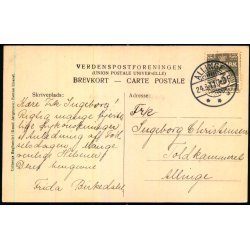 VERDENSPOSTFORENINGEN
(UNION POSTALE UNIVERSELLE)
BREVKORT — CARTE POSTALE
Skriveplads:
Adresse:
Kære Frk Ingeborg!
Rigtig mange hjerte-
lige Lykønskninger
i Anledning af Fød-
selsdagen. Mange
venlige Hilsener
Deres hengivne
Frida Birkedahl
Frk
Ingeborg Christensen
Toldkammeret
Allinge